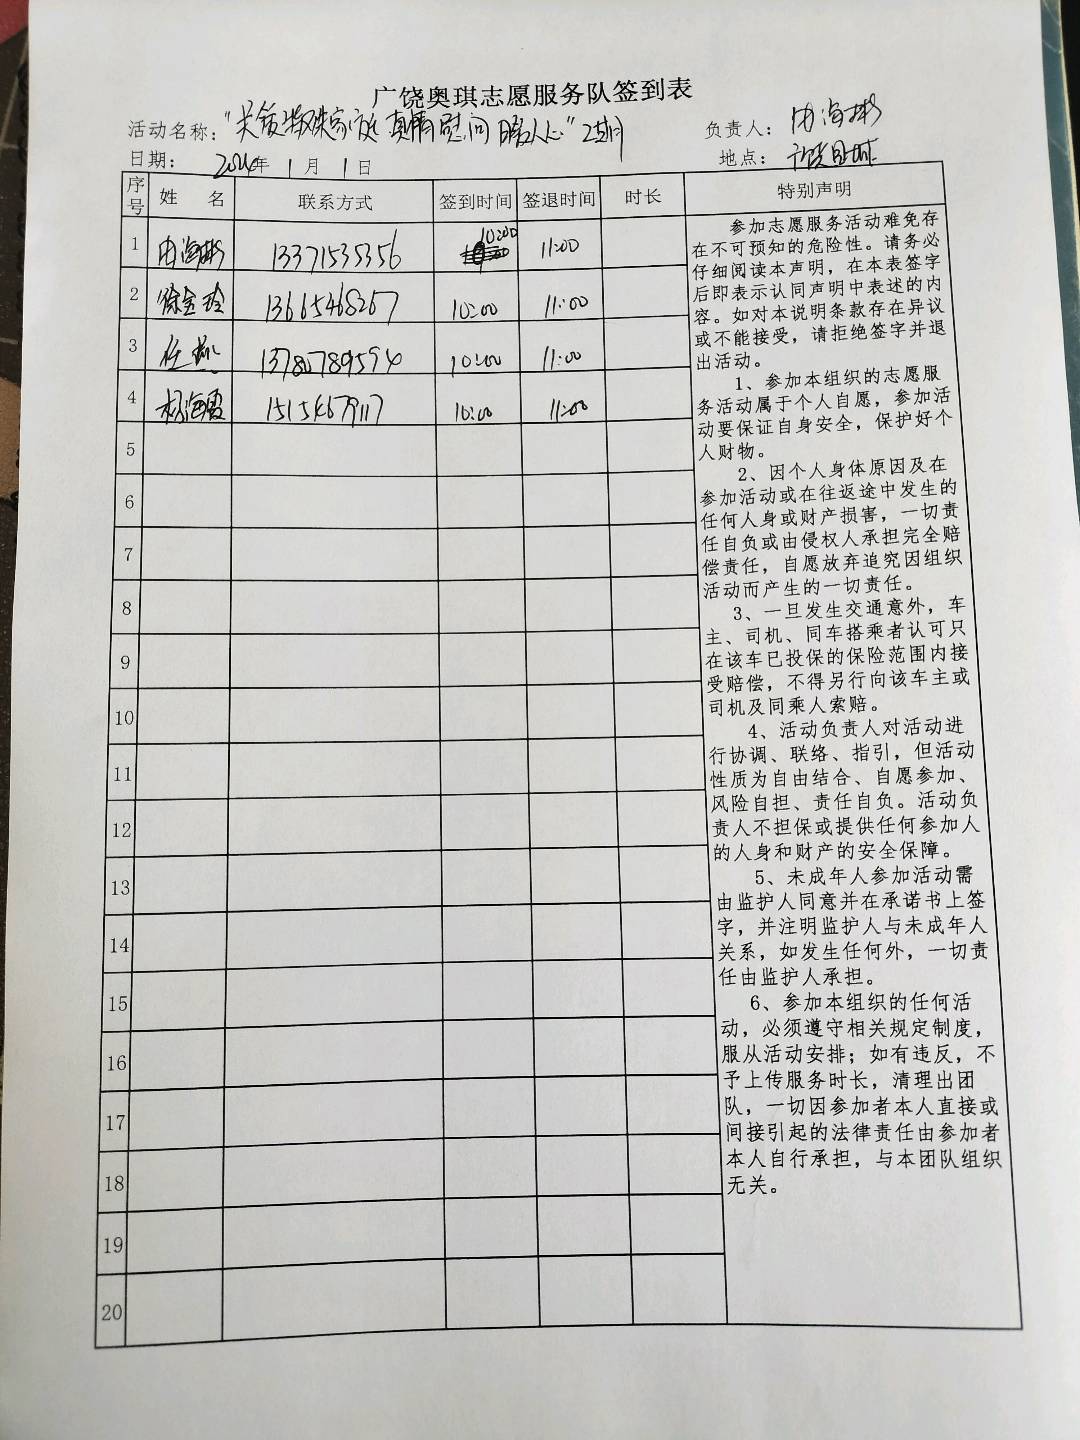 广饶奥琪志愿服务队签到表
活动名称："关爱特殊家庭 真情慰问暖人心"2期
负责人：由海彬
日期： 2024年 1月 1日
地点：广饶县城
序号 姓 名 联系方式 签到时间 签退时间 时长 特别声明
1 由海彬 13371535356 10:00 11:00
2 徐金玲 13665468267 10:00 11:00
3 任 13780789594 10:00 11:00
4 杨海霞 15154679117 10:00 11:00
5
6
7
8
9
10
11
12
13
14
15
16
17
18
19
20
参加志愿服务活动难免存
在不可预知的危险性。请务必
仔细阅读本声明，在本表签字
后即表示认同声明中表述的内
容。如对本说明条款存在异议
或不能接受，请拒绝签字并退
出活动。
1、参加本组织的志愿服
务活动属于个人自愿，参加活
动要保证自身安全，保护好个
人财物。
2、因个人身体原因及在
参加活动或在往返途中发生的
任何人身或财产损害，一切责
任自负或由侵权人承担完全赔
偿责任，自愿放弃追究因组织
活动而产生的一切责任。
3、一旦发生交通意外，车
主、司机、同车搭乘者认可只
在该车已投保的保险范围内接
受赔偿，不得另行向该车主或
司机及同乘人索赔。
4、活动负责人对活动进
行协调、联络、指引，但活动
性质为自由结合、自愿参加、
风险自担、责任自负。活动负
责人不担保或提供任何参加人
的人身和财产的安全保障。
5、未成年人参加活动需
由监护人同意并在承诺书上签
字，并注明监护人与未成年人
关系，如发生任何外，一切责
任由监护人承担。
6、参加本组织的任何活
动，必须遵守相关规定制度，
服从活动安排；如有违反，不
予上传服务时长，清理出团
队，一切因参加者本人直接或
间接引起的法律责任由参加者
本人自行承担，与本团队组织
无关。